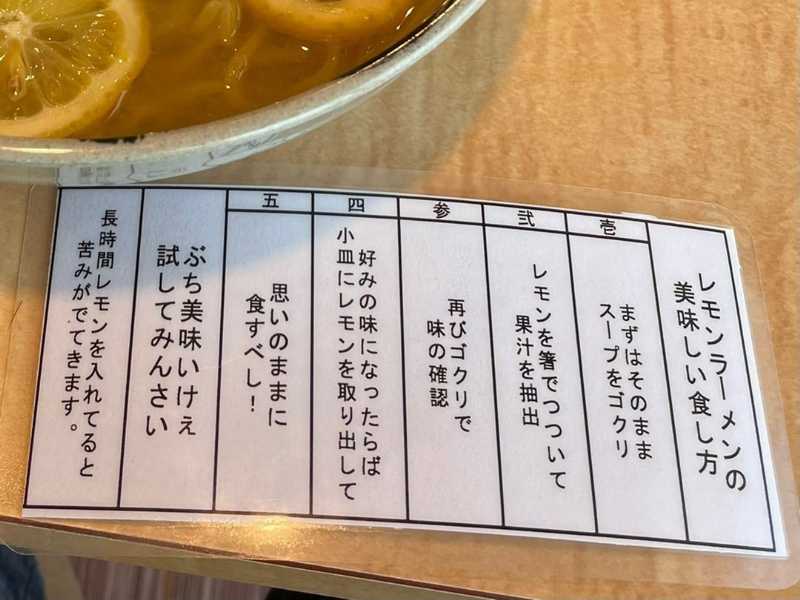 レモンラーメンの
美味しい食し方
壱
まずはそのまま
スープをゴクリ
弐
レモンを箸でつついて
果汁を抽出
参
再びゴクリで
味の確認
四
好みの味になったらば
小皿にレモンを取り出して
五
思いのままに
食すべし！
ぶち美味いけぇ
試してみんさい
長時間レモンを入れてると
苦みがでてきます。